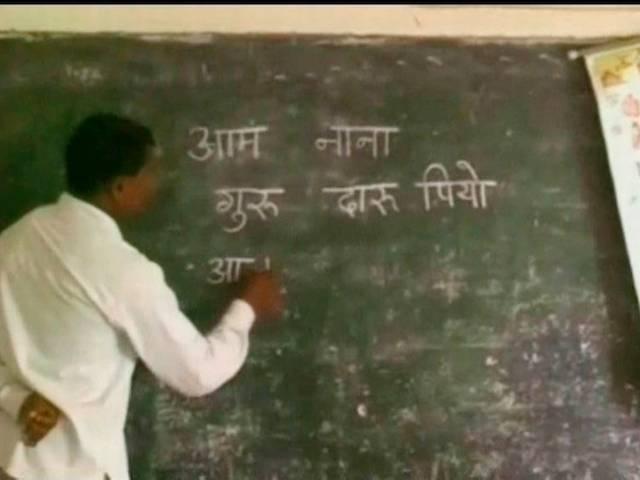 आम नाना
गुरु दारु पियो
आ